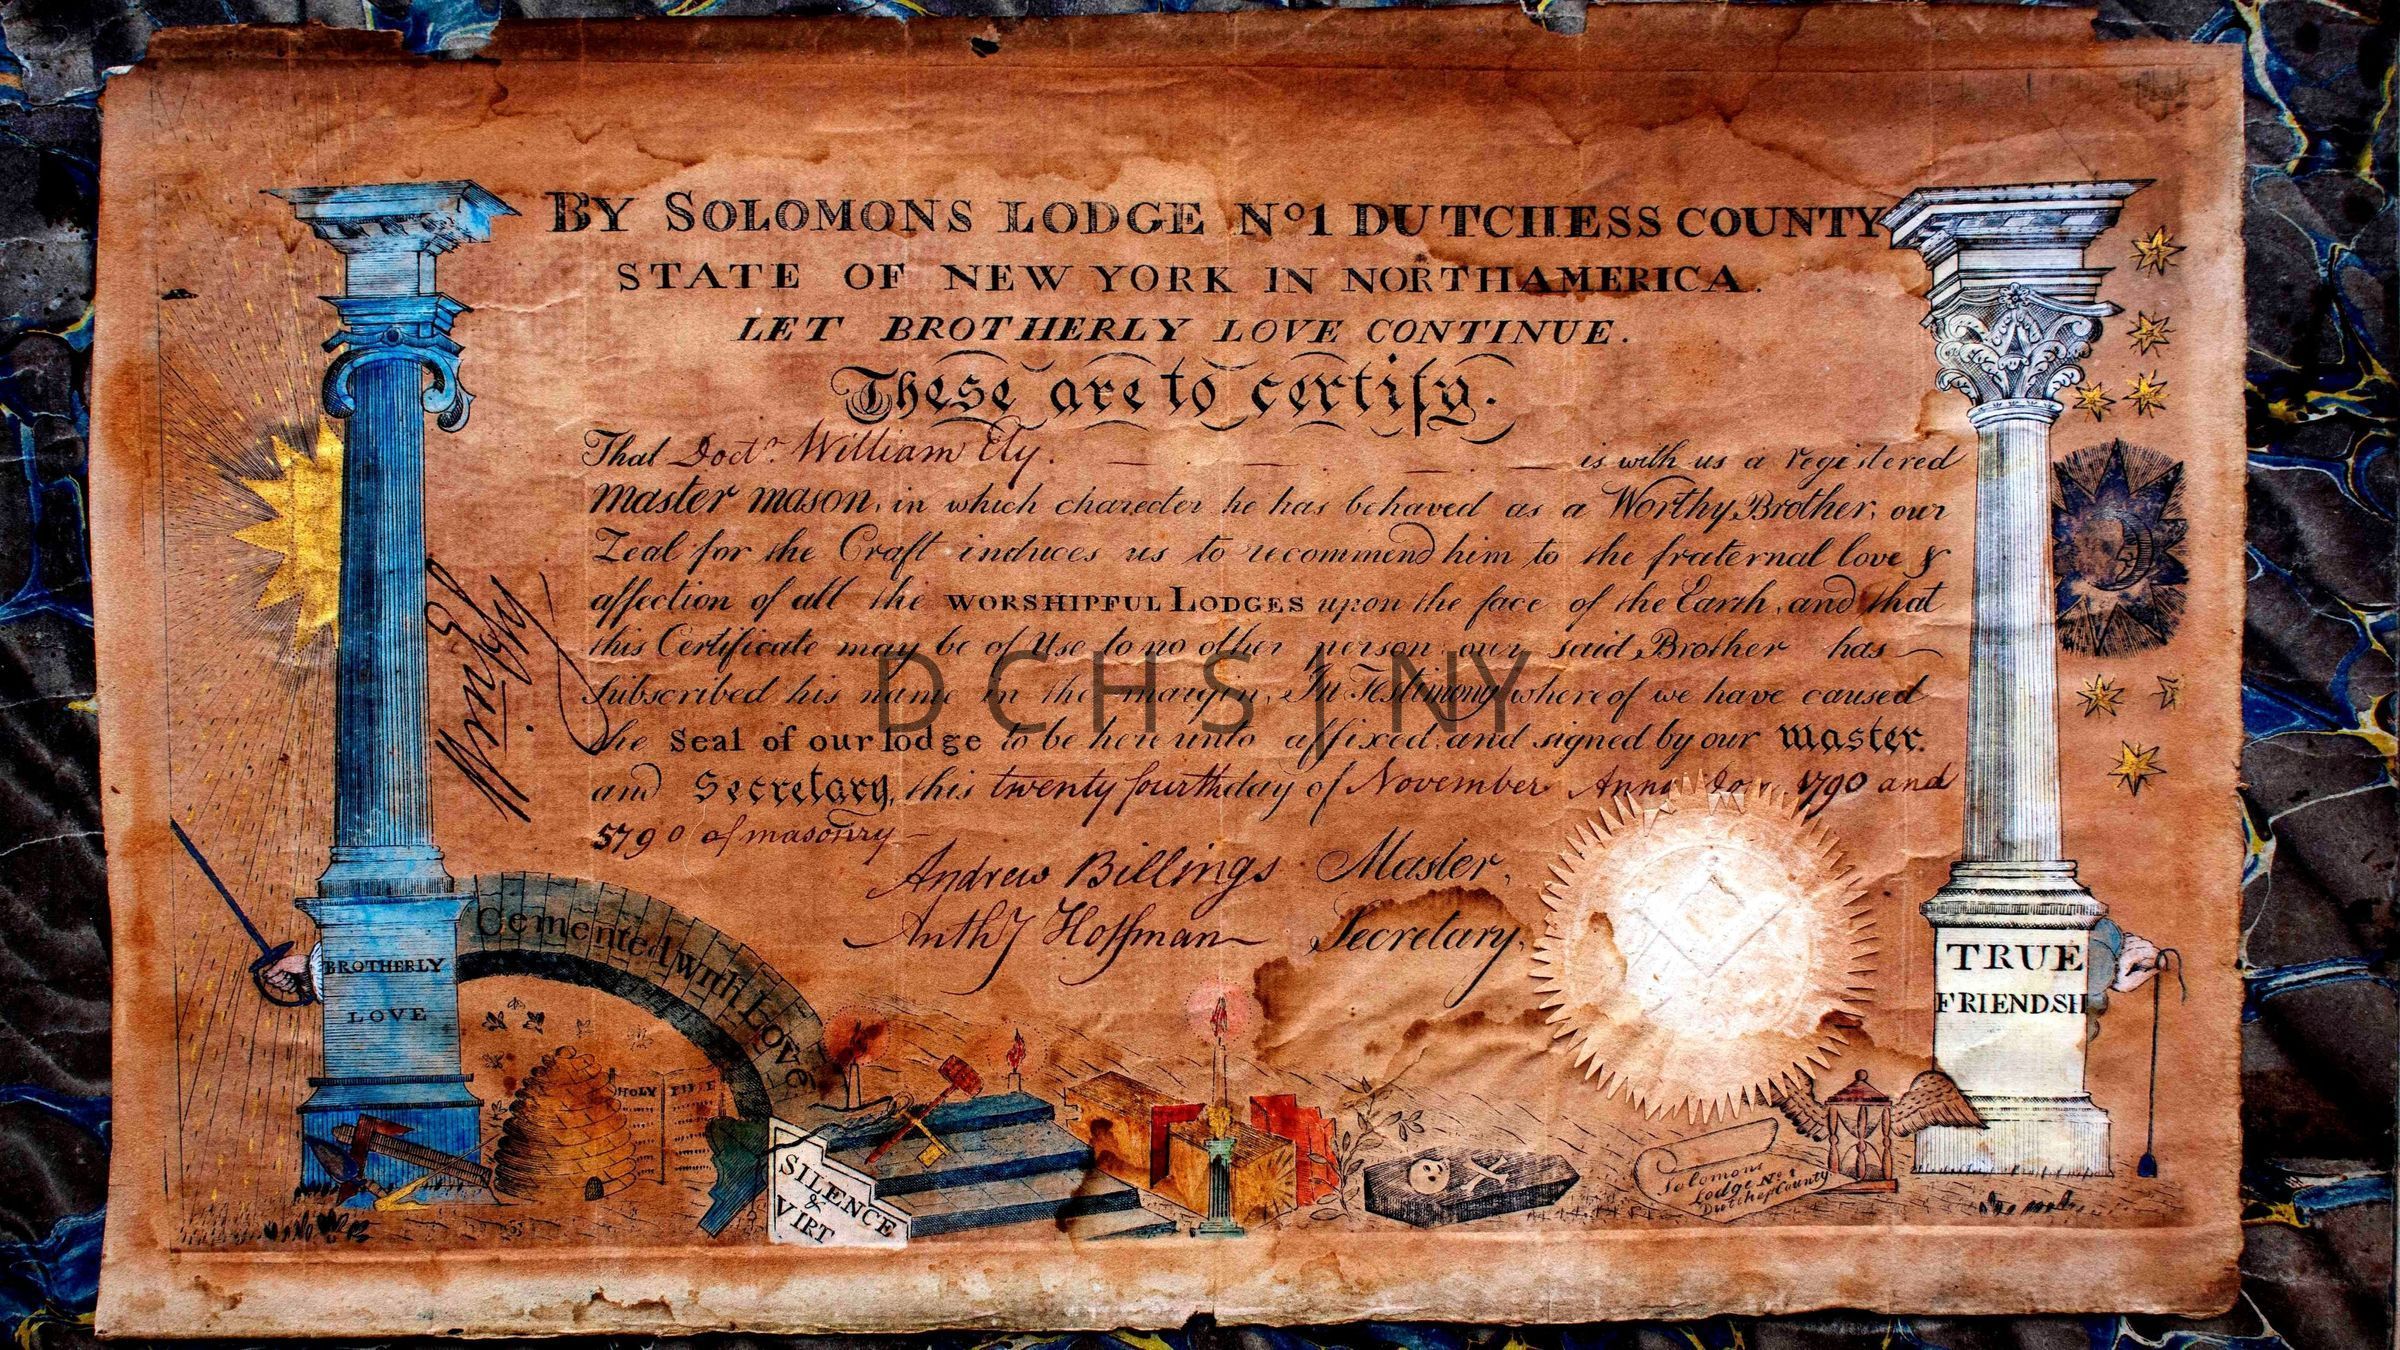 BY SOLOMONS LODGE Nº1 DUTCHESS COUNTY
STATE OF NEW YORK IN NORTHAMERICA.
LET BROTHERLY LOVE CONTINUE.
These are to certify.
That Doctr. William Ely. is with us a registered
Master mason, in which charecter he has behaved as a Worthy Brother, our
Zeal for the Craft induces us to recommend him to the fraternal love &
affection of all the WORSHIPFUL LODGES upon the face of the Earth, and that
this Certificate may be of Use to no other person our said Brother has
Subscribed his name in the margin, In Testimony whereof we have caused
the Seal of our lodge to be here unto affixed and signed by our Master.
and Secretary, this twenty fourth day of November Anno Dom. 1790 and
5790 of masonry
Andrew Billings Master,
Anthy Hoffman Secretary,
Wm Ely
DCHS|NY
BROTHERLY
LOVE
Cemented with Love
HOLY BIBLE
SILENCE
&
VIRT
Solomons
Lodge No 1
Dutchess County
TRUE
FRIENDSH